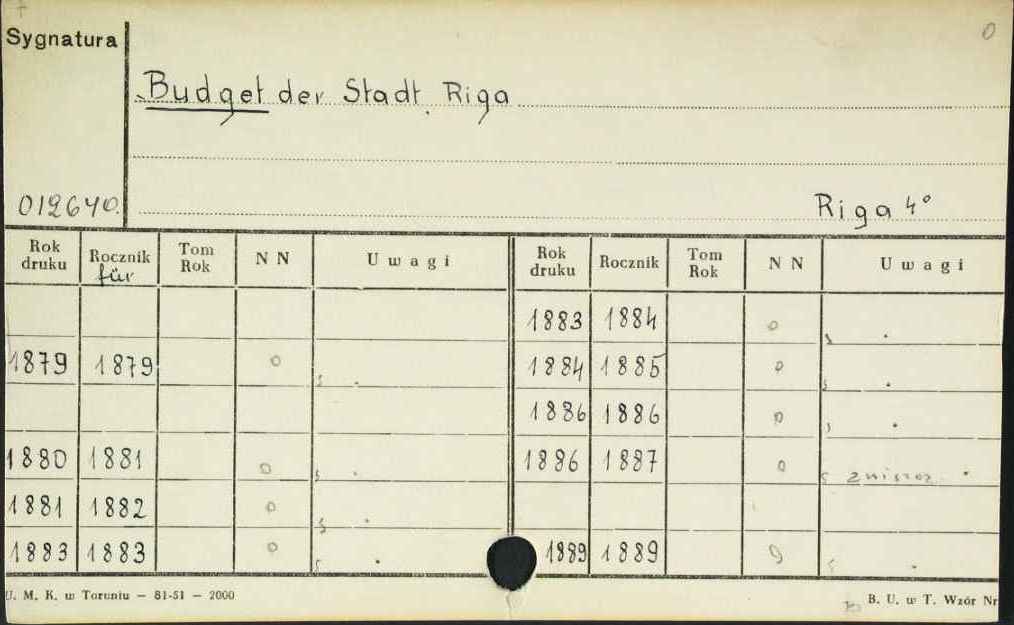 Sygnatura
0
Budget der Stadt Riga
012640.
Riga 4°
Rok druku Rocznik für Tom Rok NN Uwagi Rok druku Rocznik Tom Rok NN Uwagi
1883 1884 0
1879 1879 0 1884 1885 0
1886 1886 0
1880 1881 0 1886 1887 0 zniszcz.
1881 1882 0
1883 1883 0 1889 1889 0
U. M. K. w Toruniu — 81-51 — 2000
B. U. w T. Wzór Nr